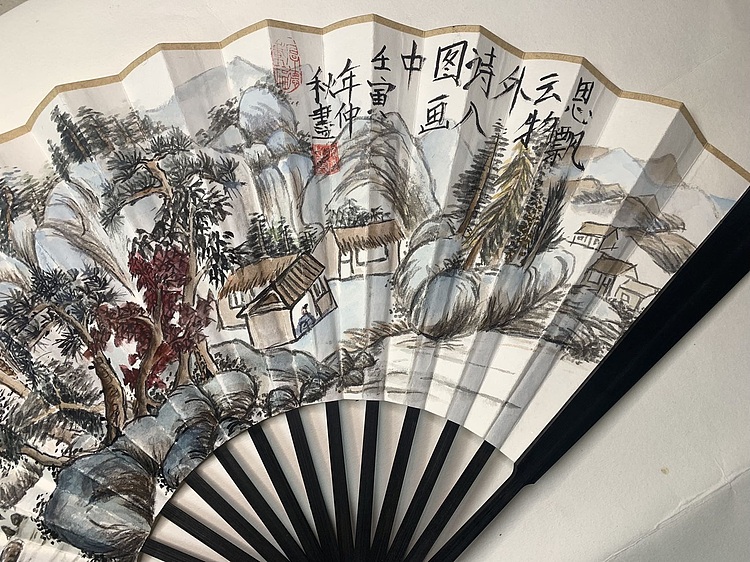 思飘
云物
外
诗入
图画
中
壬寅
年仲
秋畫